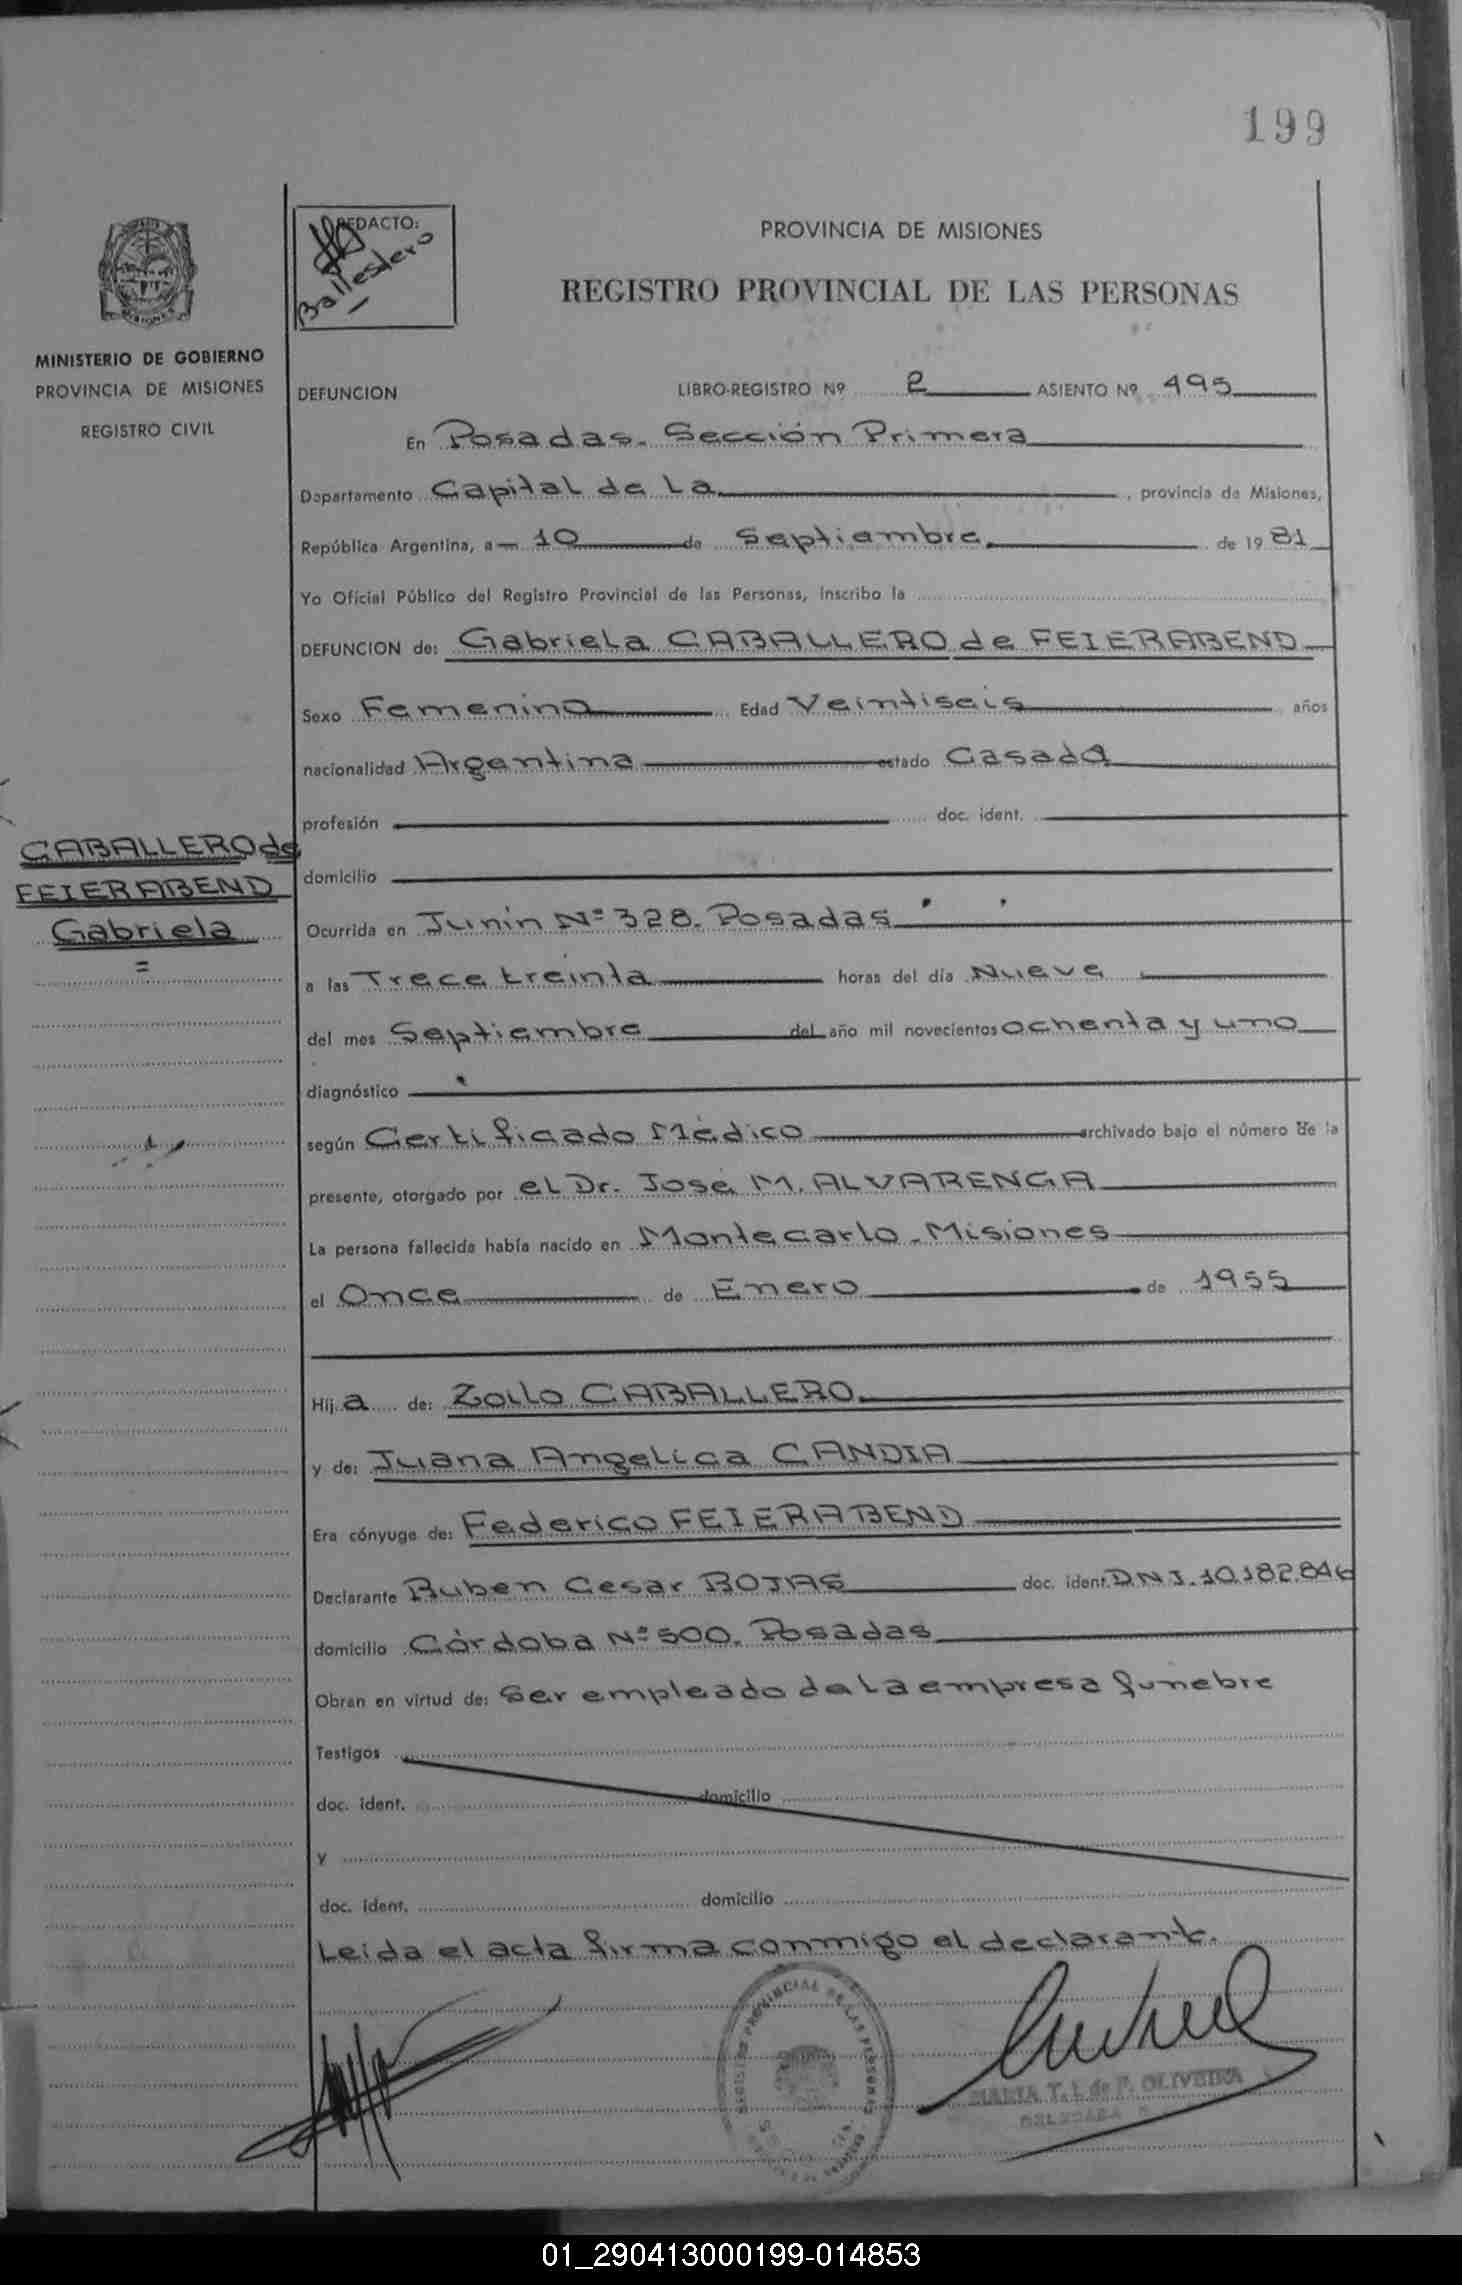 199
REDACTO:
Ballestero
PROVINCIA DE MISIONES
REGISTRO PROVINCIAL DE LAS PERSONAS
MINISTERIO DE GOBIERNO
PROVINCIA DE MISIONES
REGISTRO CIVIL
DEFUNCION LIBRO-REGISTRO Nº 2 ASIENTO Nº 495
En Posadas. Sección Primera
Departamento Capital de La, provincia de Misiones,
República Argentina, a 10 de Septiembre de 1981
Yo Oficial Público del Registro Provincial de las Personas, inscribo la
DEFUNCION de: Gabriela CABALLERO de FEIERABEND
Sexo Femenino Edad Veintiseis años
nacionalidad Argentina estado Casada
profesión doc. ident.
CABALLERO de
FEIERABEND
Gabriela
domicilio
Ocurrida en Junín Nº 328. Posadas
a las Trece treinta horas del día Nueve
del mes Septiembre del año mil novecientos ochenta y uno
diagnóstico
según Certificado Médico archivado bajo el número de la
presente, otorgado por el Dr. José M. ALVARENGA
La persona fallecida había nacido en Montecarlo - Misiones
el Once de Enero de 1955
Hija de: Zoilo CABALLERO
y de: Juana Angelica CANDIA
Era cónyuge de: Federico FEIERABEND
Declarante Ruben Cesar ROJAS doc. ident. DNI. 10.182.846
domicilio Córdoba Nº 500. Posadas
Obran en virtud de: Ser empleado de la empresa fúnebre
Testigos
doc. ident. domicilio
y
doc. ident. domicilio
Leida el acta firma conmigo el declarante.
REGISTRO PROVINCIAL DE LAS PERSONAS
MARIA T. I. de F. OLIVEIRA
DELEGADA
01_290413000199-014853